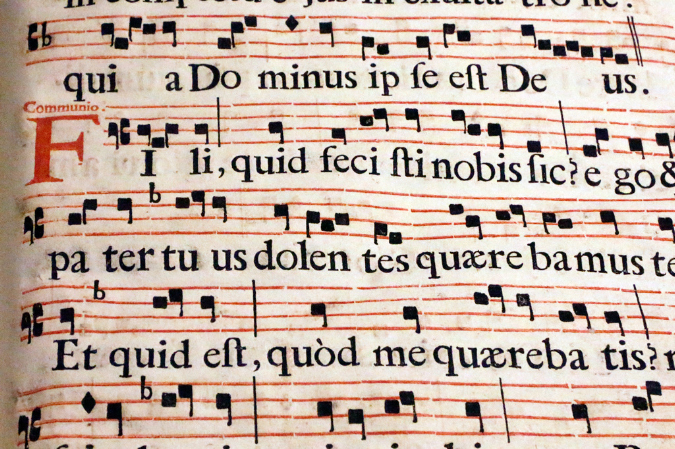 qui a Do minus ip ſe eſt De us.
Communio.
FI li, quid feci ſti nobis ſic? e go &
pa ter tu us dolen tes quære bamus te
Et quid eſt, quòd me quæreba tis?